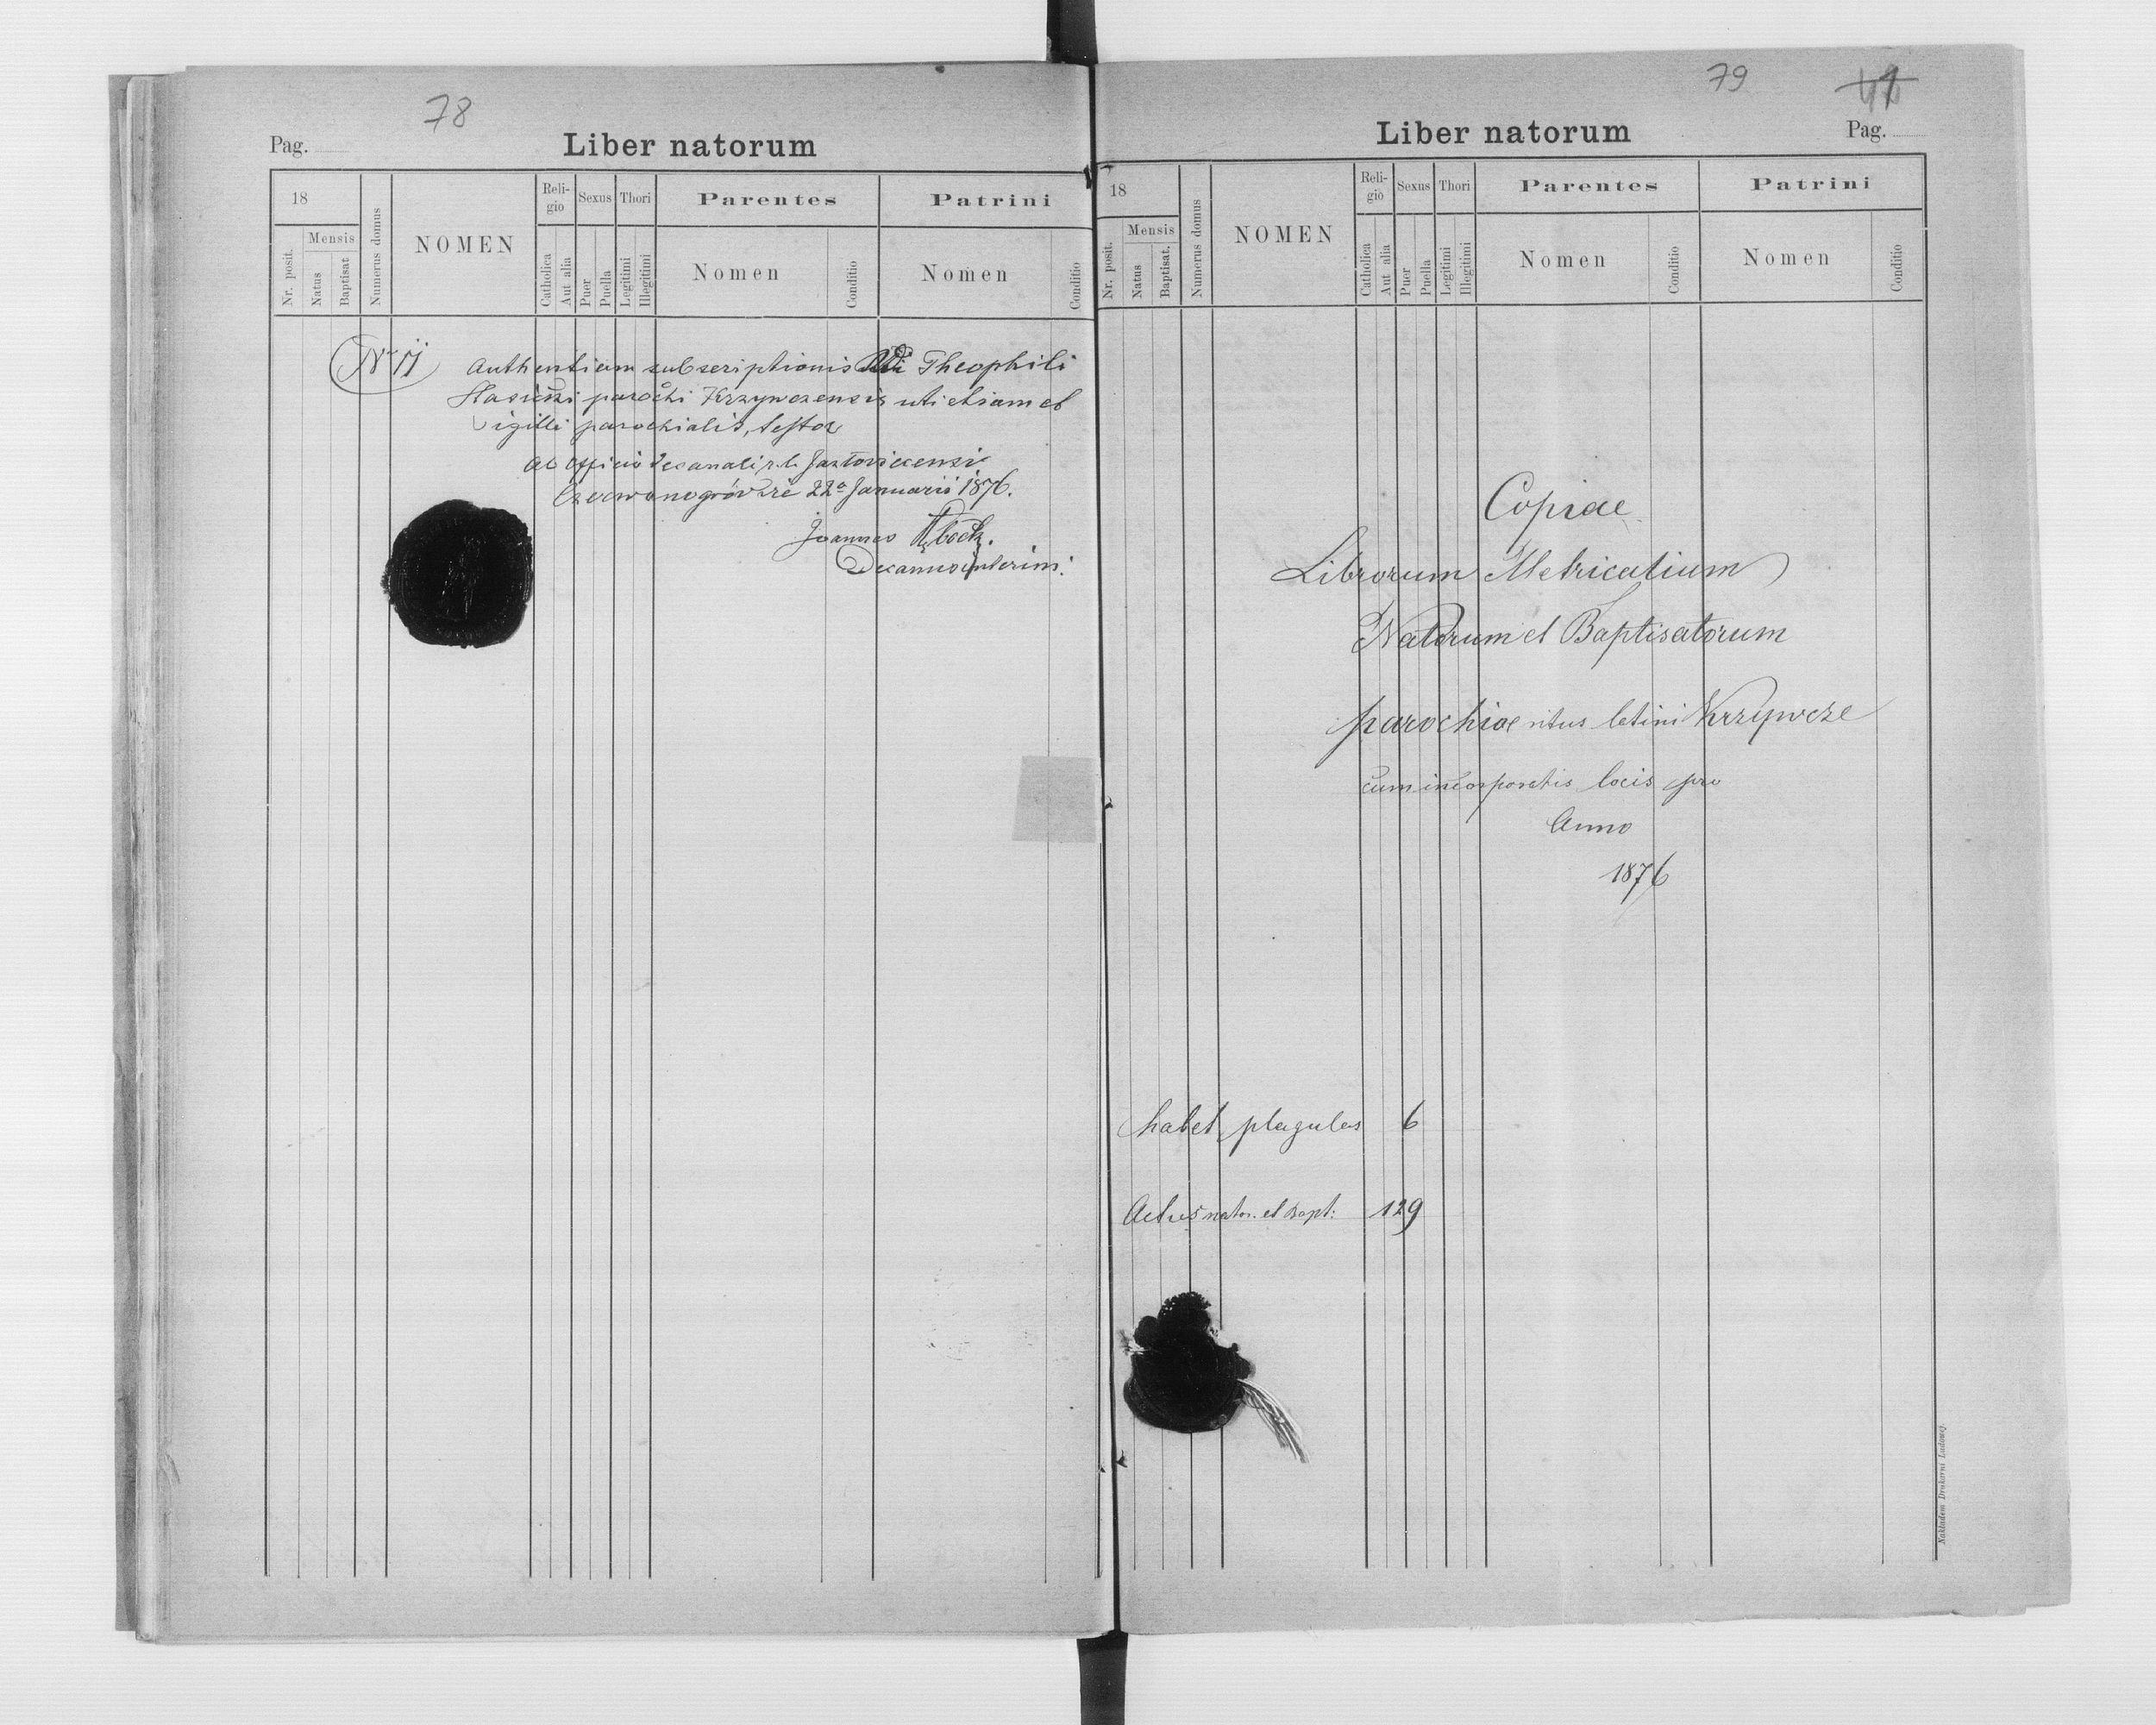 78
Pag.
Liber natorum
18
Mensis
Nr. posit.
Natus
Baptisat
Numerus domus
NOMEN
Reli-
gio
Catholica
Aut alia
Sexus
Puer
Puella
Thori
Legitimi
Illegitimi
Parentes
Nomen
Conditio
Patrini
Nomen
Conditio
Nr 11 Authentiam subscriptionis Theophili
parochi Krzywczensis uti etiam et
sigilli parochialis, testor
Ab Officio decanali r. l. Jazlovicensi
Czerwonogródzie 22a Januarii 1876.
Joannes
Decanus interim.
79
41
Liber natorum
Pag.
18
Mensis
Nr. posit.
Natus
Baptisat.
Numerus domus
NOMEN
Reli-
gio
Catholica
Aut alia
Sexus
Puer
Puella
Thori
Legitimi
Illegitimi
Parentes
Nomen
Conditio
Patrini
Nomen
Conditio
Copiae
Librorum Metricalium
Natorum et Baptisatorum
parochiae ritus latini Krzywcze
cum incorporatis locis pro
Anno
1876
habet plagulas 6
Actus nator. et Bapt: 129
Nakładem Drukarni Ludowej.